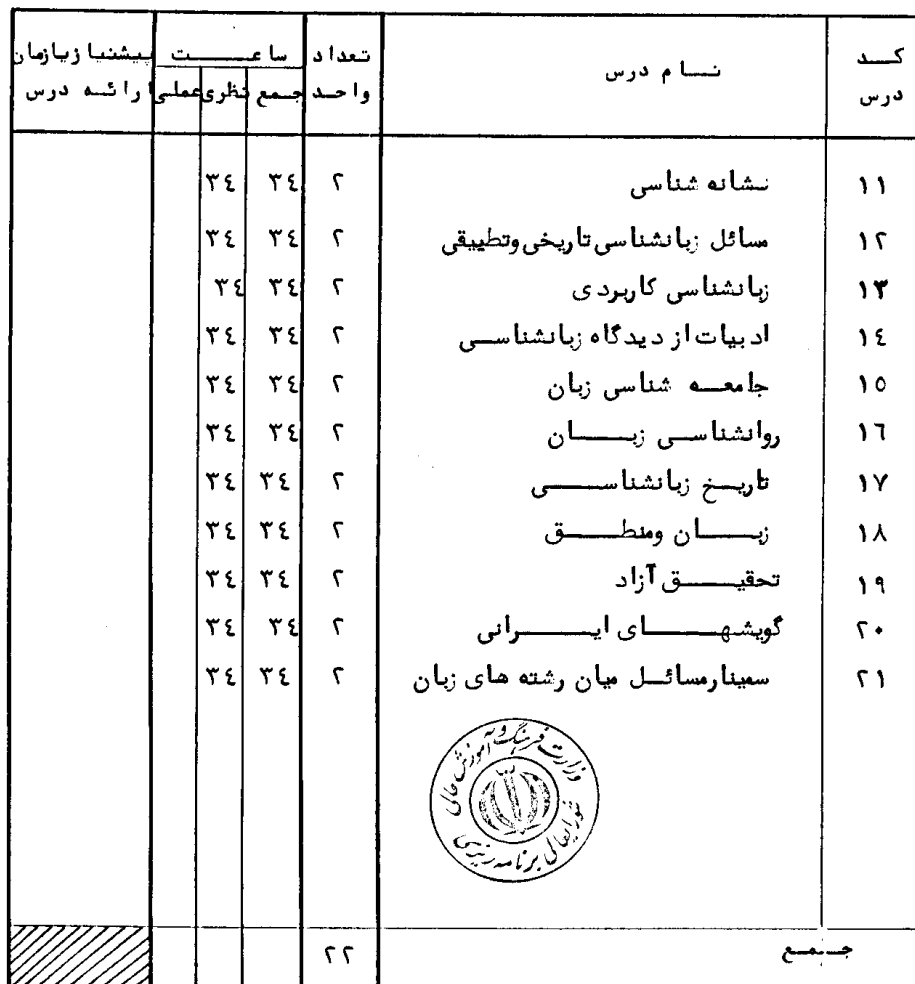 کد درس نام درس تعداد واحد ساعت جمع نظری عملی پیشنیاز یا زمان ارائه درس
۱۱ نشانه شناسی ۲ ۳٤ ۳٤
۱۲ مسائل زبانشناسی تاریخی وتطبیقی ۲ ۳٤ ۳٤
۱۳ زبانشناسی کاربردی ۲ ۳٤ ۳٤
۱٤ ادبیات از دیدگاه زبانشناسی ۲ ۳٤ ۳٤
۱٥ جامعه شناسی زبان ۲ ۳٤ ۳٤
۱٦ روانشناسی زبان ۲ ۳٤ ۳٤
۱۷ تاریخ زبانشناسی ۲ ۳٤ ۳٤
۱۸ زبان ومنطق ۲ ۳٤ ۳٤
۱۹ تحقیق آزاد ۲ ۳٤ ۳٤
۲۰ گویشهای ایرانی ۲ ۳٤ ۳٤
۲۱ سمینارمسائل میان رشته های زبان ۲ ۳٤ ۳٤
وزارت فرهنگ و آموزش عالی
شورایعالی برنامه ریزی
جمع ۲۲